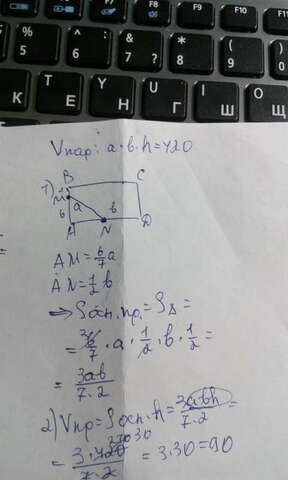 F6 F7 F8 F9
% 5 :
^ 6 ,
& 7 ?
* 8
( 9
К Е Н Г Ш Щ
Vпар: a·b·h=420
1) B C
M
б a b
A N D
AM=6/7 a
AN=1/2 b
⇒ Sосн.пр.=S△=
= 6/7 · a · 1/2 · b · 1/2 =
= 3ab/7·2
2) Vпр=Sосн·h= 3abh/7·2 =
= 3·420/7·2 = 3·30=90